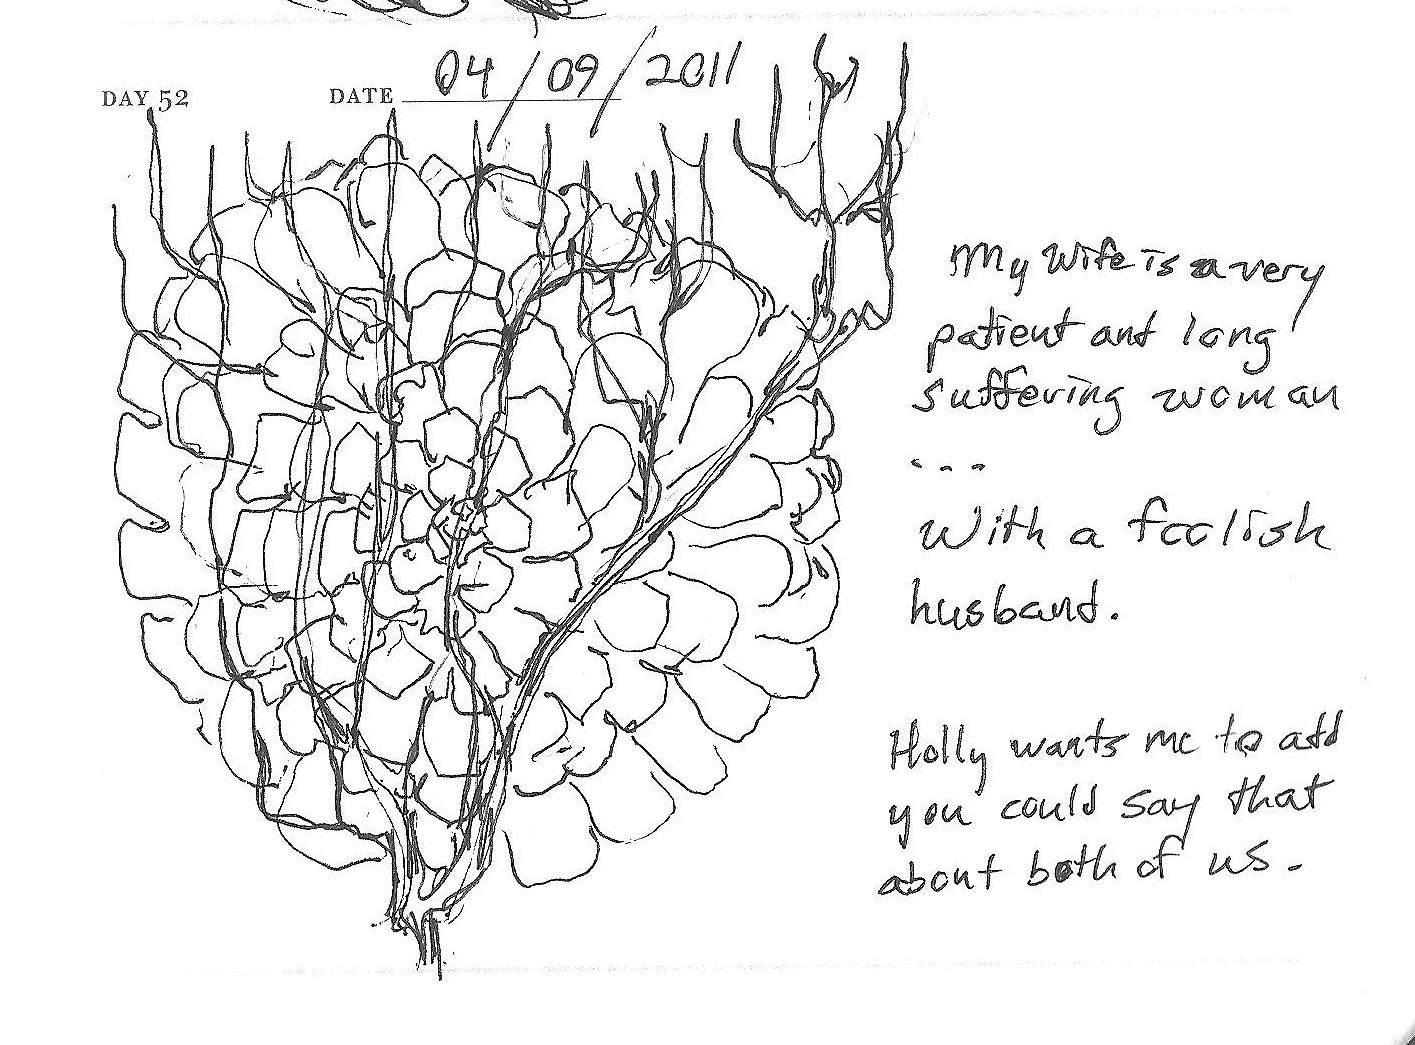 DAY 52 DATE 04/09/2011
My Wife is a very
patient and long
suffering woman
...
With a foolish
husband.
Holly wants me to add
you could say that
about both of us.